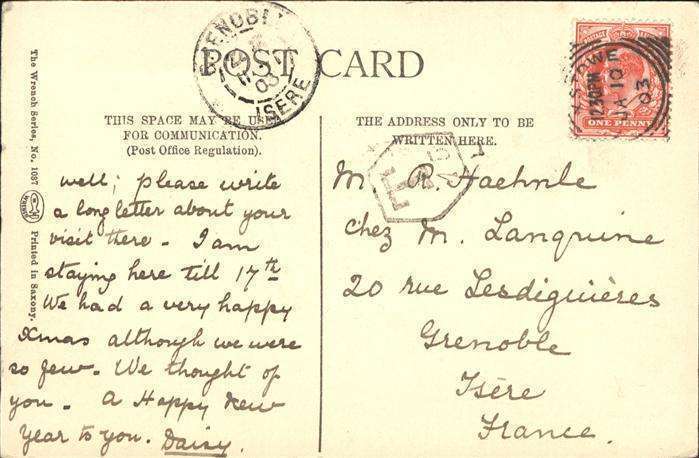 POST CARD
THIS SPACE MAY BE USED
FOR COMMUNICATION.
(Post Office Regulation).
THE ADDRESS ONLY TO BE
WRITTEN HERE.
The Wrench Series, No. 1087
Printed in Saxony.
well; please write
a long letter about your
visit there - I am
staying here till 17th
We had a very happy
Xmas although we were
so few. We thought of
you. A Happy New
Year to you. Daisy.
M R. Haehnle
chez M. Languine
20 rue Lesdiguières
Grenoble
Isère
France.
GRENOBLE
03
ISERE
ONE PENNY
7.30PM
JA 10
03